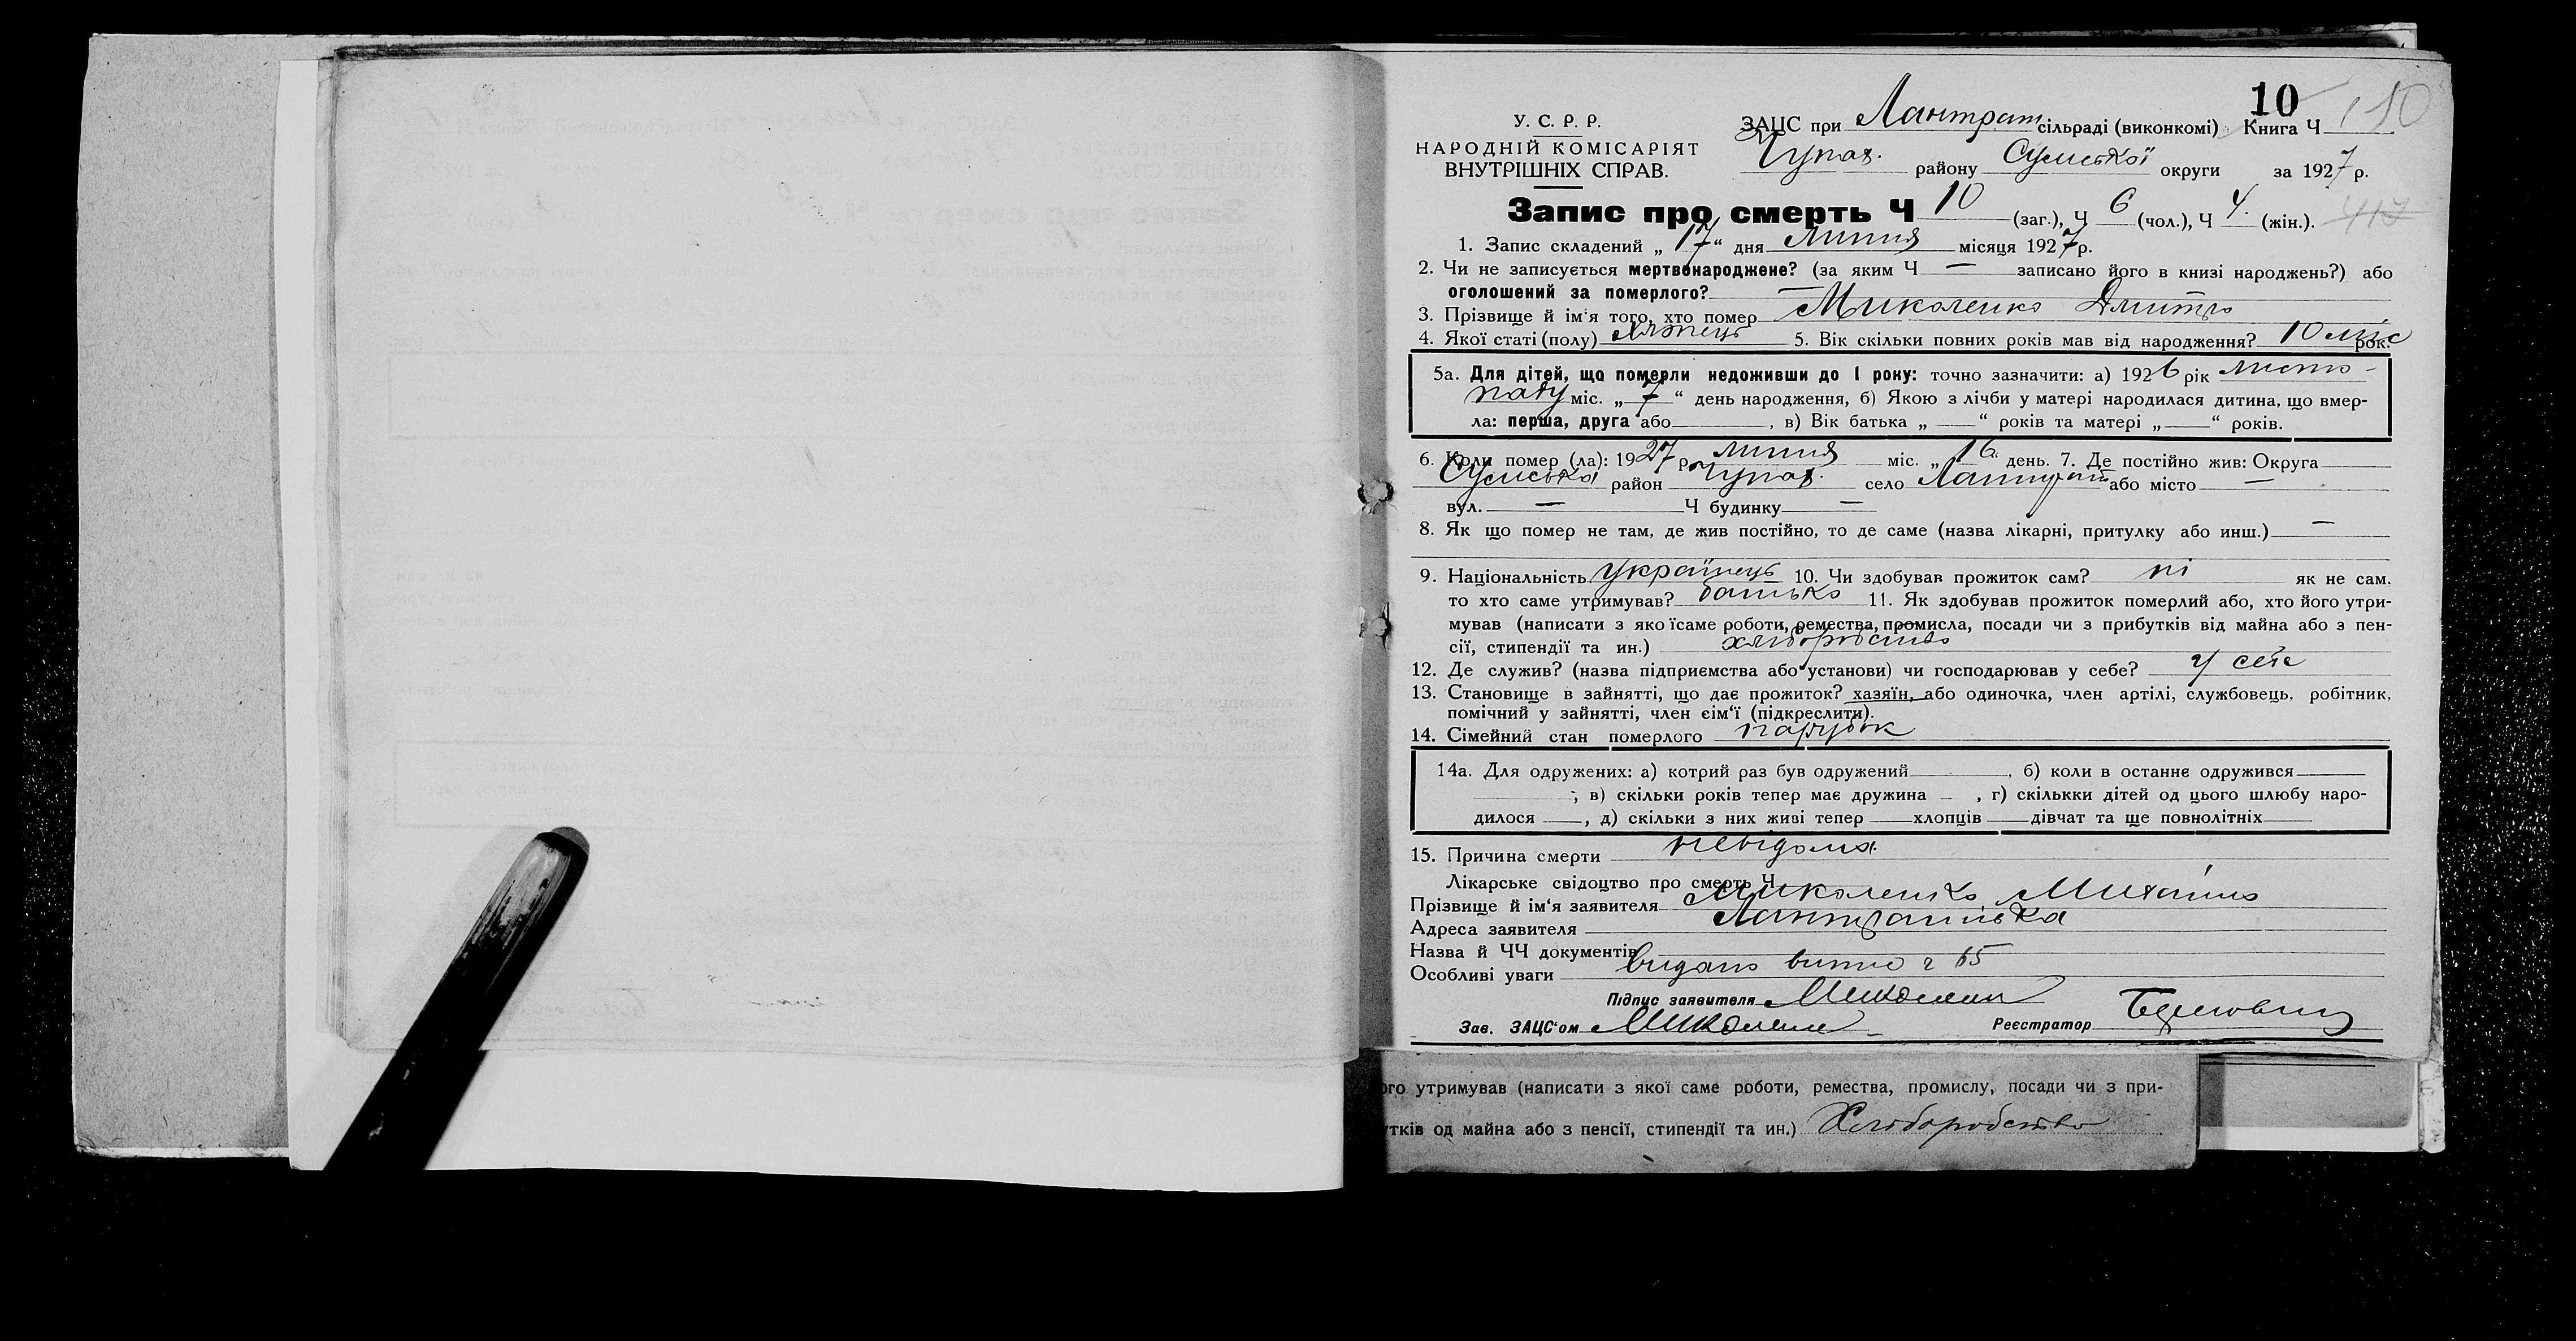 10
У. С. Р. Р. ЗАЦС при Лантрат сільраді (виконкомі) Книга Ч 10
НАРОДНІЙ КОМІСАРІЯТ
ВНУТРІШНІХ СПРАВ. Чупах. району Сумської округи за 1927 р.
Запис про смерть Ч 10 (заг.), Ч 6 (чол.), Ч 4. (жін.). 417
1. Запис складений „ 17 “ дня липня місяця 1927 р.
2. Чи не записується мертвонароджене? (за яким Ч — записано його в книзі народжень?) або
оголошений за померлого? —
3. Прізвище й ім'я того, хто помер Миколенко Дмитро
4. Якої статі (полу) хлопець 5. Вік скільки повних років мав від народження? 10 міс рок.
5а. Для дітей, що померли недоживши до 1 року: точно зазначити: а) 1926 рік листо-
паду міс. „ 7 “ день народження, б) Якою з лічби у матері народилася дитина, що вмер-
ла: перша, друга або , в) Вік батька „ — “ років та матері „ — “ років.
6. Коли помер (ла): 1927 р. липня міс. „ 16 день. 7. Де постійно жив: Округа
Сумська район Чупах. село Лантрат або місто —
вул. — Ч будинку —
8. Як що помер не там, де жив постійно, то де саме (назва лікарні, притулку або инш.) —
9. Національність українець 10. Чи здобував прожиток сам? ні як не сам,
то хто саме утримував? батько 11. Як здобував прожиток померлий або, хто його утри-
мував (написати з яко їсаме роботи, ремества, промисла, посади чи з прибутків від майна або з пен-
сії, стипендії та ин.) хліборобство
12. Де служив? (назва підприємства або установи) чи господарював у себе? у себе
13. Становище в зайнятті, що дає прожиток? хазяїн, або одиночка, член артілі, службовець, робітник,
помічний у зайнятті, член сім‘ї (підкреслити).
14. Сімейний стан померлого парубок
14а. Для одружених: а) котрий раз був одружений , б) коли в останнє одружився
, в) скільки років тепер має дружина — , г) скількки дітей од цього шлюбу наро-
дилося , д) скільки з них живі тепер хлопців дівчат та ще повнолітніх
15. Причина смерти невідома.
Лікарське свідоцтво про смерть Ч
Прізвище й ім'я заявителя Миколенко Михайло
Адреса заявителя Лантратівка
Назва й ЧЧ документів
Особливі уваги видано витяг ч 65
Підпис заявителя Миколенко
Зав. ЗАЦС‘ом Миколенко Реєстратор
ого утримував (написати з якої саме роботи, ремества, промислу, посади чи з при-
тків од майна або з пенсії, стипендії та ин.) Хліборобство